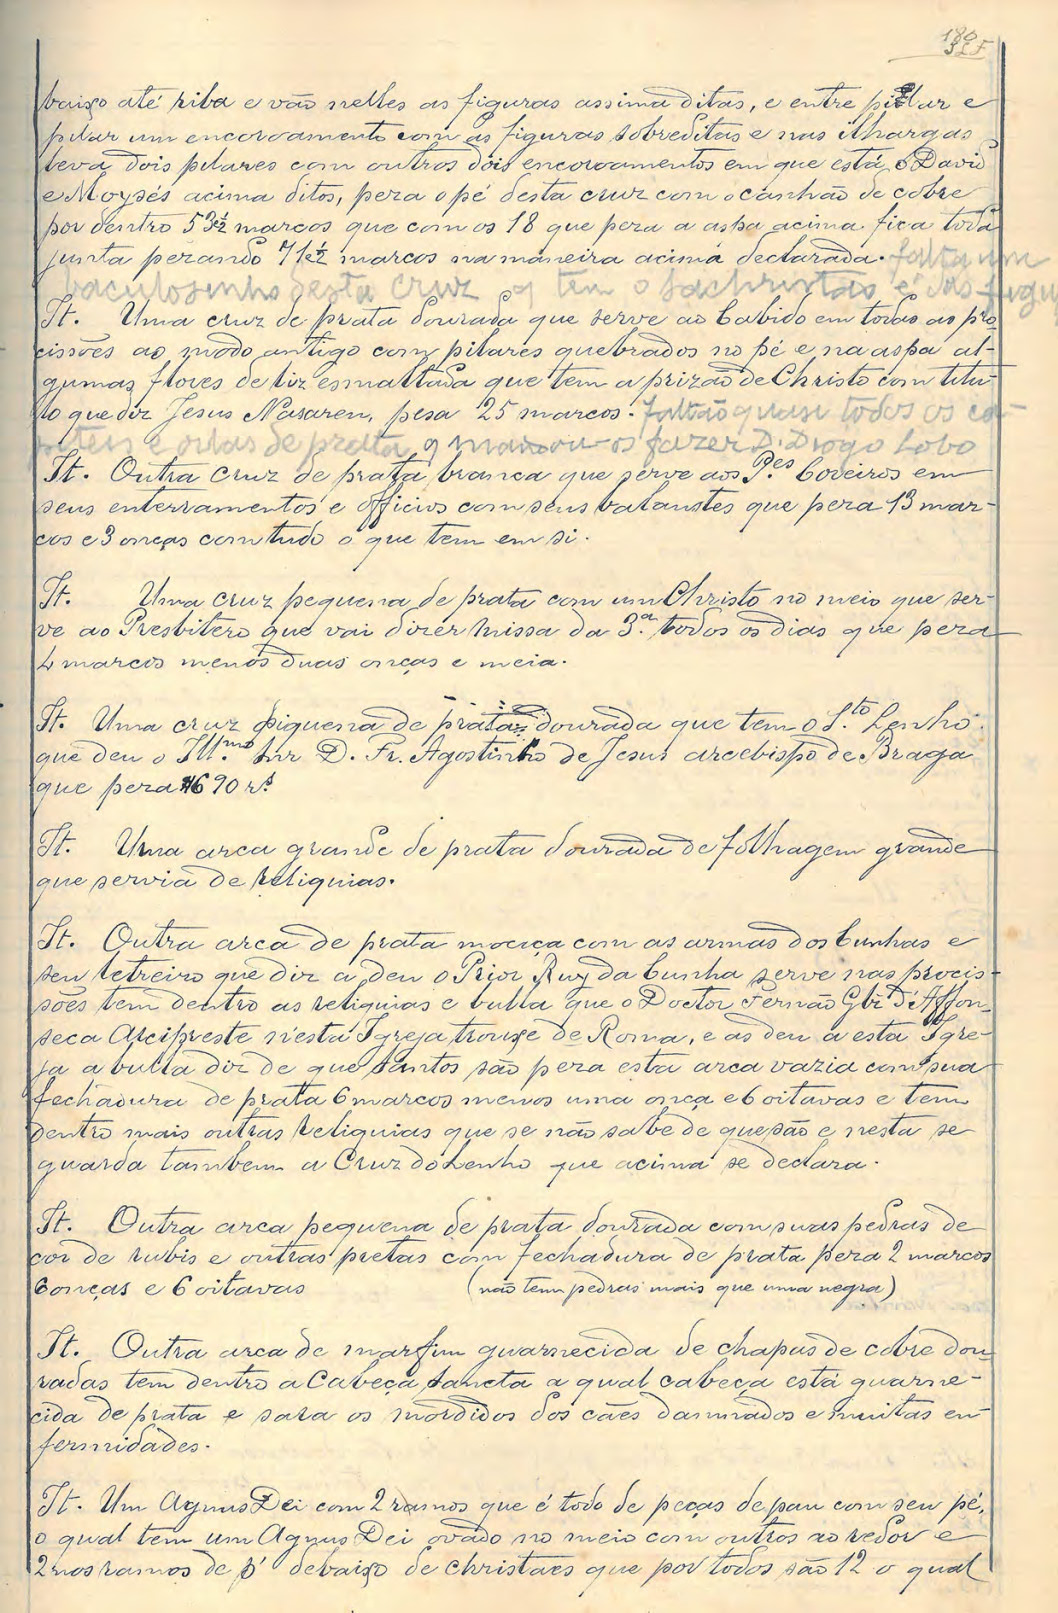 baixo até riba e vão nelles as figuras assima ditas, e entre pilar e
pilar um encoroamento com as figuras sobreditas e nas ilhargas
leva dois pilares com outros dois encoroamentos em que está o David
e Moysés acima ditos, peza o pé desta cruz com o canhão de cobre
por dentro 53½ marcos que com os 18 que peza a aspa acima fica toda
junta pezando 71½ marcos na maneira acima declarada. falta um
baculosinho desta cruz q tem o sachristão e das figu
It. Uma cruz de prata dourada que serve ao Cabido em todas as pro-
cissões ao modo antigo com pilares quebrados no pé e na aspa al-
gumas flores de liz esmaltada que tem a prizão de Christo com titu-
lo que diz Jesus Nazaren, pesa 25 marcos. faltão quasi todos os
e de prata q mandou os fazer D. Diogo Lobo
It. Outra cruz de prata branca que serve aos P.es Coveiros em
seus enterramentos e officios com seus balaustes que peza 13 mar-
cos e 3 onças com tudo o que tem em si.
It. Uma cruz pequena de prata com um Christo no meio que ser-
ve ao Presbitero que vai dizer missa da 3.a todos os dias que peza
4 marcos menos duas onças e meia.
It. Uma cruz piquena de prata dourada que tem o S.to Lenho
que deu o Ill.mo Snr D. Fr. Agostinho de Jesus arcebispo de Braga
que peza 4690 rs.
It. Uma arca grande de prata dourada de folhagem grande
que servia de reliquias.
It. Outra arca de prata mociça com as armas dos Cunhas e
seu letreiro que diz a deu o Prior Ruy da Cunha serve nas procis-
sões tem dentro as reliquias e bulla que o Doctor Fernão Glz d'Affon-
seca Arcipreste nesta Igreja trouxe de Roma, e as deu a esta Igre-
ja a bulla diz de que santos são peza esta arca vazia com sua
fechadura de prata 6 marcos menos uma onça e 6 oitavas e tem
dentro mais outras reliquias que se não sabe de que são e nesta se
guarda tambem a Cruz do Lenho que acima se declara.
It. Outra arca pequena de prata dourada com suas pedras de
cor de rubis e outras pretas com fechadura de prata peza 2 marcos
6 onças e 6 oitavas (não tem pedras mais que uma negra)
It. Outra arca de marfim guarnecida de chapas de cobre dou-
radas tem dentro a Cabeça sancta a qual cabeça está guarne-
cida de prata e sara os mordidos dos cães damnados e muitas en-
fermidades.
It. Um Agnus Dei com 2 ramos que é todo de peças de pau com seu pé,
o qual tem um Agnus Dei ovado no meio com outros ao redor e
2 nos ramos de p' debaixo de christaes que por todos são 12 o qual